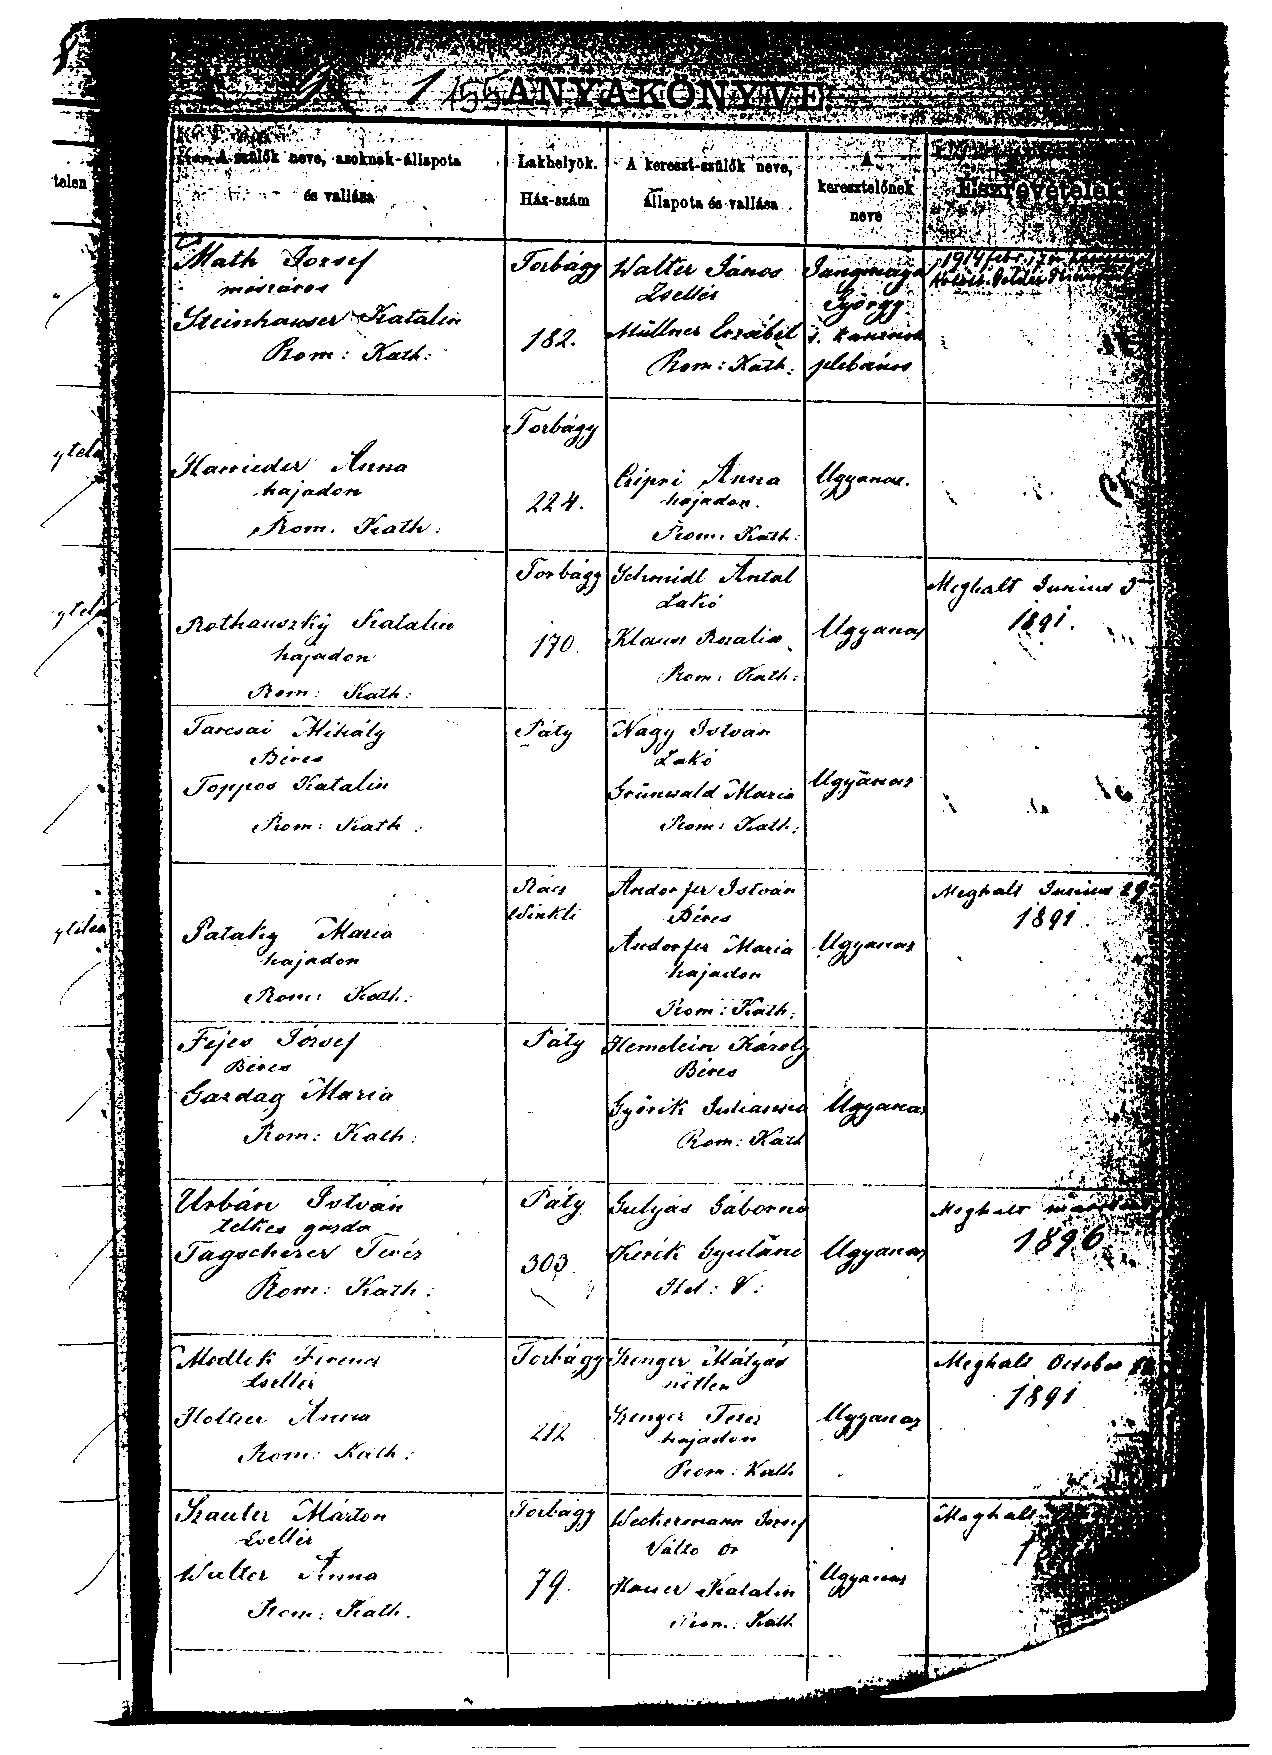 155 ANYAKÖNYVE.
A szülők neve, azoknak állapota
és vallása
Lakhelyök.
Ház-szám
A kereszt-szülők neve,
állapota és vallása
A
keresztelőnek
neve
Észrevételek
telen
Math József
mészáros
Steinhauser Katalin
Rom: Kath:
Torbágy
182.
Walter János
Zsellér
Müllner Erzsébet
Rom: Kath:
György
plébános
1914 febr.
Harrieder Anna
hajadon
Rom. Kath:
Torbágy
224.
Czipri Anna
hajadon.
Rom: Kath:
Ugyanaz.
Rothauszky Katalin
hajadon
Rom: Kath:
Torbágy
170.
Schmidt Antal
Lakó
Klaus Rozalia
Rom: Kath:
Ugyanaz
Meghalt Junius
1891.
Tarcsai Mihály
Béres
Toppos Katalin
Rom: Kath:
Páty
Nagy István
Lakó
Grünwald Maria
Rom: Kath:
Ugyanaz
Pataky Maria
hajadon
Rom: Kath:
Rácz
Winkli
Andorfer István
Béres
Andorfer Maria
hajadon
Rom: Kath:
Ugyanaz
Meghalt Junius 29
1891.
Fejes József
Béres
Gazdag Maria
Rom: Kath:
Páty
Hemlein Károly
Béres
Györik Julianna
Rom: Kath
Ugyanaz
Urbán István
telkes gazda
Tagscherer Teréz
Rom: Kath:
Páty
303.
Gulyás Gáborné
Kerék Gyuláné
Hel: V:
Ugyanaz
Meghalt
1896
Medlik Ferencz
Zsellér
Holzer Anna
Rom: Kath:
Torbágy
212
Szenger Mátyás
nőtlen
Szenger Teréz
hajadon
Rom: Kath
Ugyanaz
Meghalt October
1891
Szauter Márton
Zsellér
Walter Anna
Rom: Kath.
Torbágy
79.
Weckermann József
Váltó őr
Hauser Katalin
Rom: Kath
Ugyanaz
Meghalt